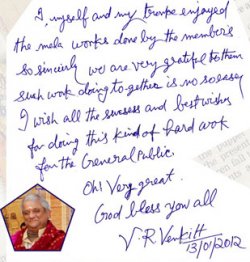 I, myself and my troupe enjoyed
the mela works done by the members
so sincerly we are very gratefull to them
such work doing to-gether is no so easy
I wish all the success and best wishes
for doing this kind of hard wok
for the General Public.
Oh! Very great.
God bless you all
V. R. Venkitt
13/01/2012